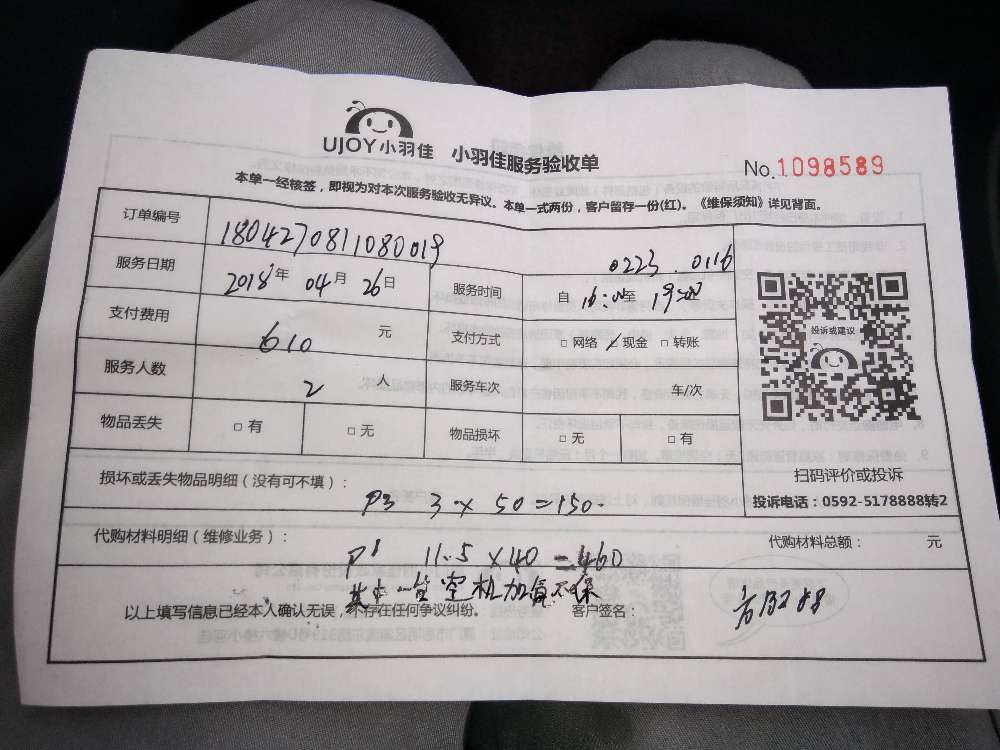 UJOY小羽佳 小羽佳服务验收单
No.1098589
本单一经核签，即视为对本次服务验收无异议。本单一式两份，客户留存一份(红)。《维保须知》详见背面。
订单编号 1804270811080019
0223.0116
服务日期 2018年 04月 26日 服务时间 自 16:00至 19:00
支付费用 610 元 支付方式 □ 网络 ☑ 现金 □ 转账
服务人数 2 人 服务车次 车/次
物品丢失 □ 有 □ 无 物品损坏 □ 无 □ 有
投诉或建议
扫码评价或投诉
投诉电话：0592-5178888转2
损坏或丢失物品明细（没有可不填）：
P3 3 × 50 =150.
代购材料明细（维修业务）： 代购材料总额： 元
P1 11.5 ×40 =460
其中一台空机加氟不保
以上填写信息已经本人确认无误，不存在任何争议纠纷。 客户签名：